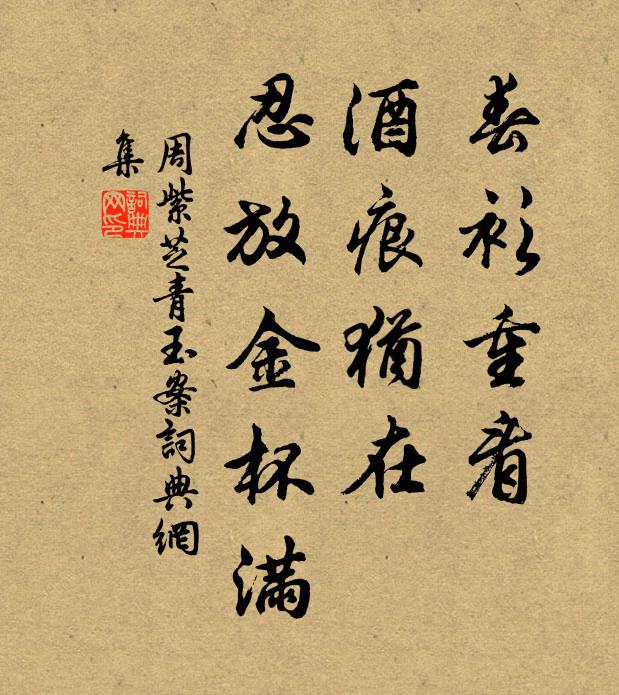 春衫重看
酒痕猶在
忍放金杯滿
周紫芝青玉案詞典網
集
詞典
网印